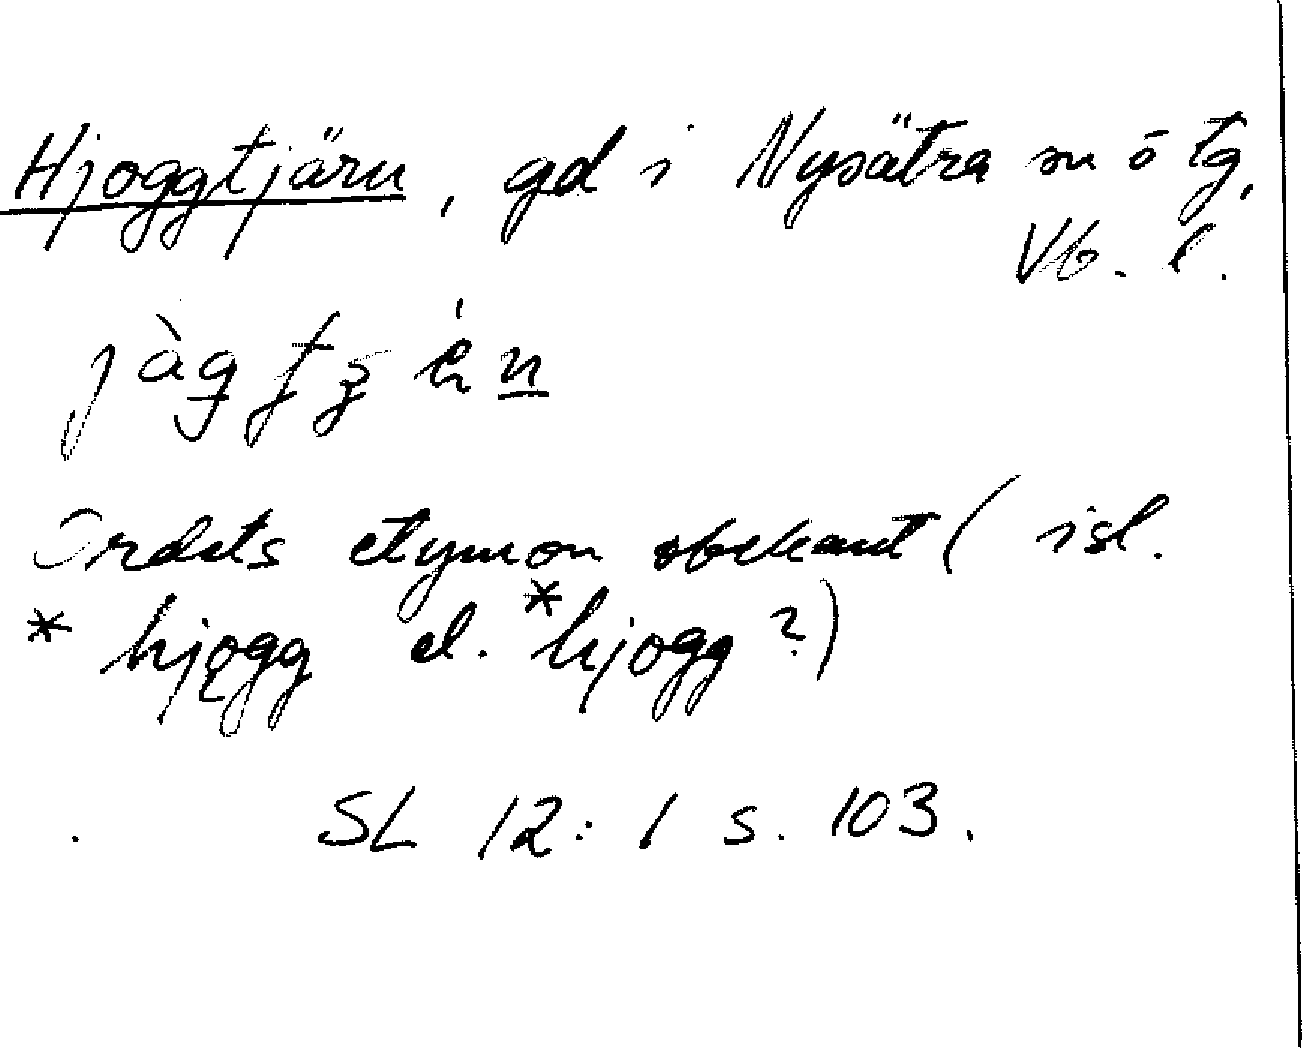 Hjoggtjärn, gd i Nysätra sn o tg,
Vb. l.
Ordets etymon obekant ( isl.
* hjǫgg el. *hjogg ?)
SL 12: 1 s. 103.